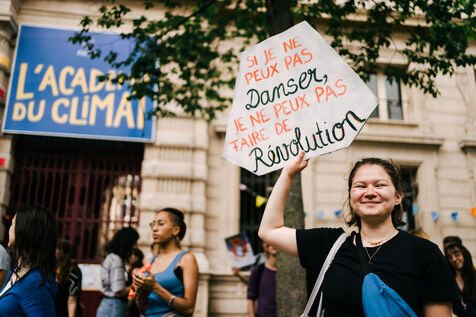 L'ACADÉMIE
DU CLIMAT
SI JE NE
PEUX PAS
Danser,
JE NE PEUX PAS
FAIRE DE
Révolution